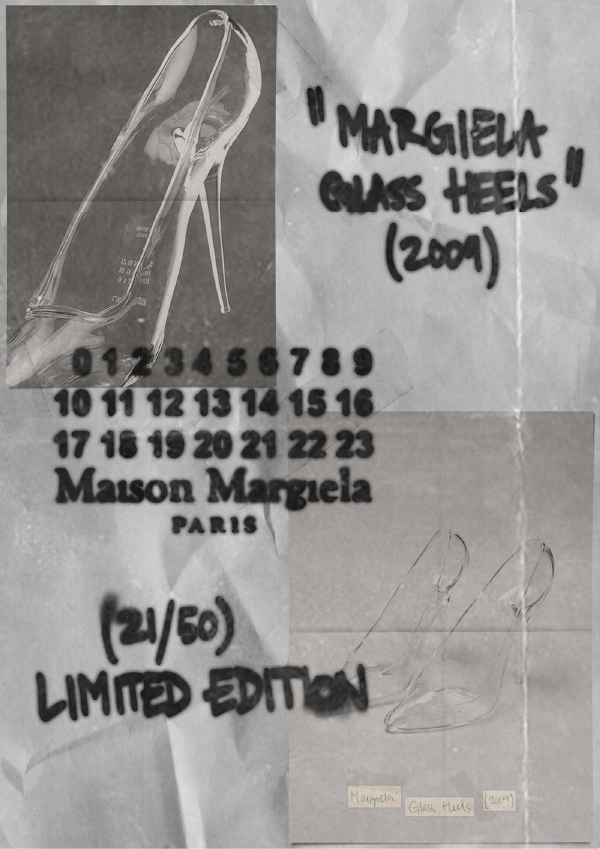 "MARGIELA
GLASS HEELS"
(2009)
0 1 2 3 4 5 6 7 8 9
10 11 12 13 14 15 16
17 18 19 20 21 22 23
Maison Margiela
PARIS
(21/50)
LIMITED EDITION
Margiela Glass Heels (2009)